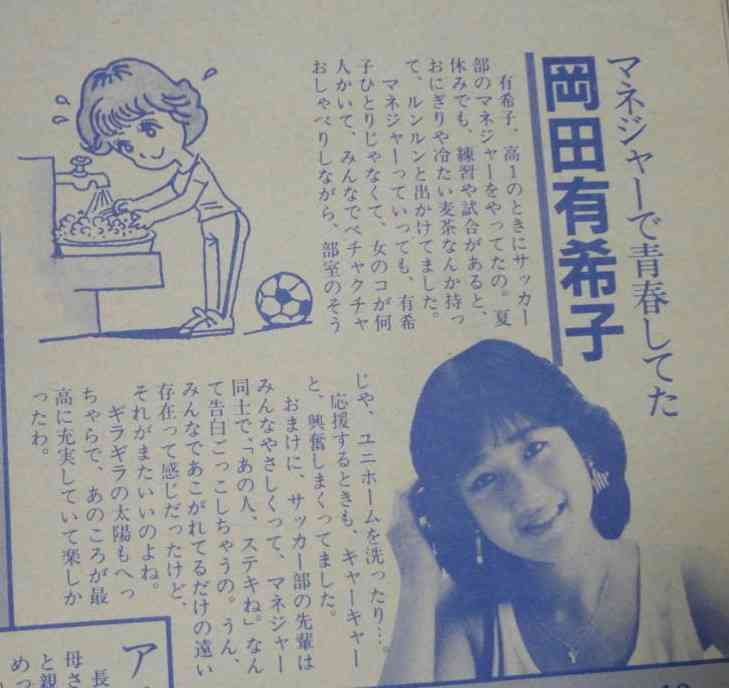 マネジャーで青春してた
岡田有希子
有希子、高1のときにサッカー
部のマネジャーをやってたの。夏
休みでも、練習や試合があると、
おにぎりや冷たい麦茶なんか持っ
て、ルンルンと出かけてました。
マネジャーっていっても、有希
子ひとりじゃなくて、女のコが何
人かいて、みんなでペチャクチャ
おしゃべりしながら、部室のそう
じや、ユニホームを洗ったり…。
応援するときも、キャーキャー
と、興奮しまくってました。
おまけに、サッカー部の先輩は
みんなやさしくって、マネジャー
同士で、「あの人、ステキね」なん
て告白ごっこしちゃうの。うん、
みんなであこがれてるだけの遠い
存在って感じだったけど、
それがまたいいのよね。
ギラギラの太陽もへっ
ちゃらで、あのころが最
高に充実していて楽しか
ったわ。
ア
長
母さ
と親
めっ